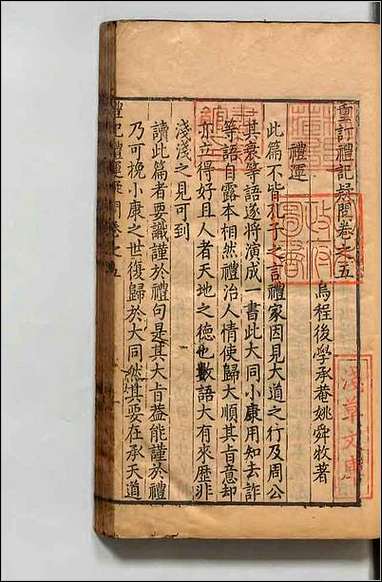 重訂禮記疑問卷之五
烏程後學承菴姚舜牧著
禮運
此篇不皆孔子之言禮家因見大道之行及周公
其衰等語遂將演成一書此大同小康用知去詐
等語自露本相然禮治人情使歸大順其旨意却
亦立得好且人者天地之德也數語大有來歷非
淺淺之見可到
讀此篇者要識謹於禮句是其大旨葢能謹於禮
乃可挽小康之世復歸於大同然其要在承天道
禮記禮運疑問卷之五
淺草文庫